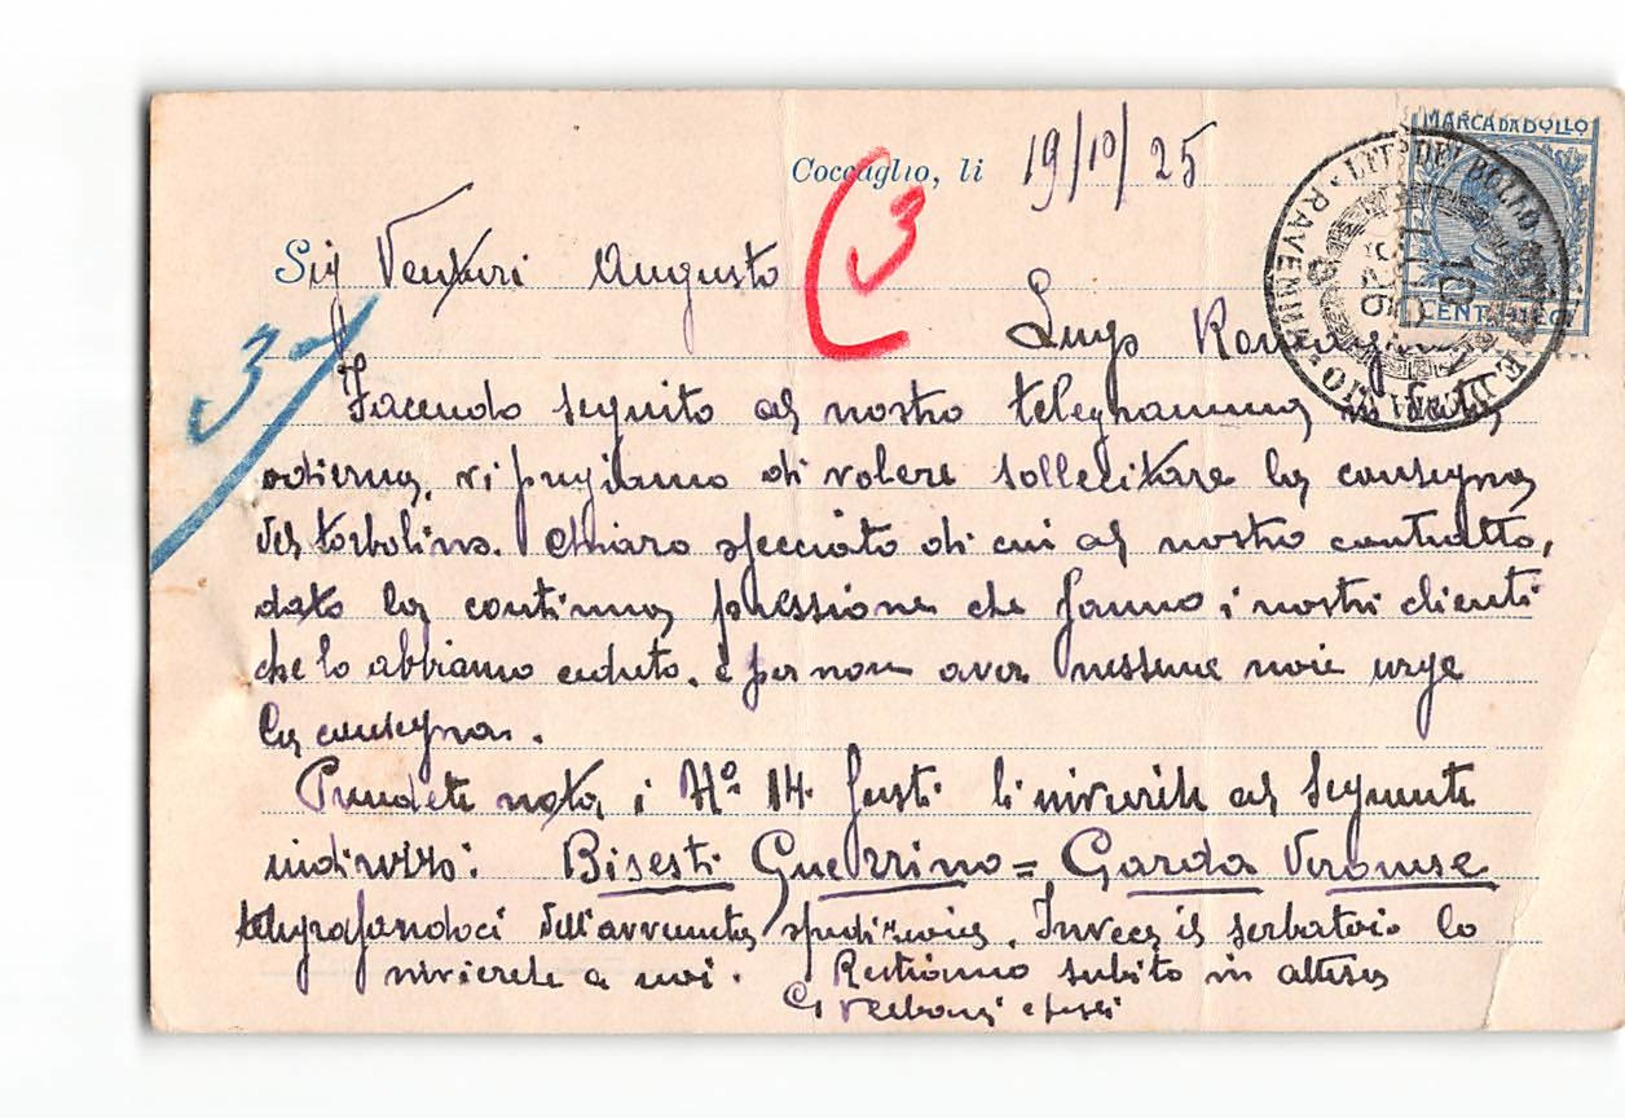 MARCA DA BOLLO
Coccaglio, li 19/10/25
3
Sig Venturi Augusto
CENT. DIECI
Lugo Romagna
3
Facendo seguito al nostro telegramma in data
odierna, vi preghiamo di volere sollecitare la consegna
del torbolino. Chiaro specciato di cui al nostro contratto,
dato la continua pressione che fanno i nostri clienti
che lo abbiamo ceduto. e per non aver nessune noie urge
la consegna.
Prendete nota, i Nº 14. fusti li invierete al seguente
indirizzo: Bisesti Guerrino = Garda Veronese
telegrafandoci dell'avvenuta spedizione. Invece il serbatoio lo
invierete a noi. Restiamo subito in attesa